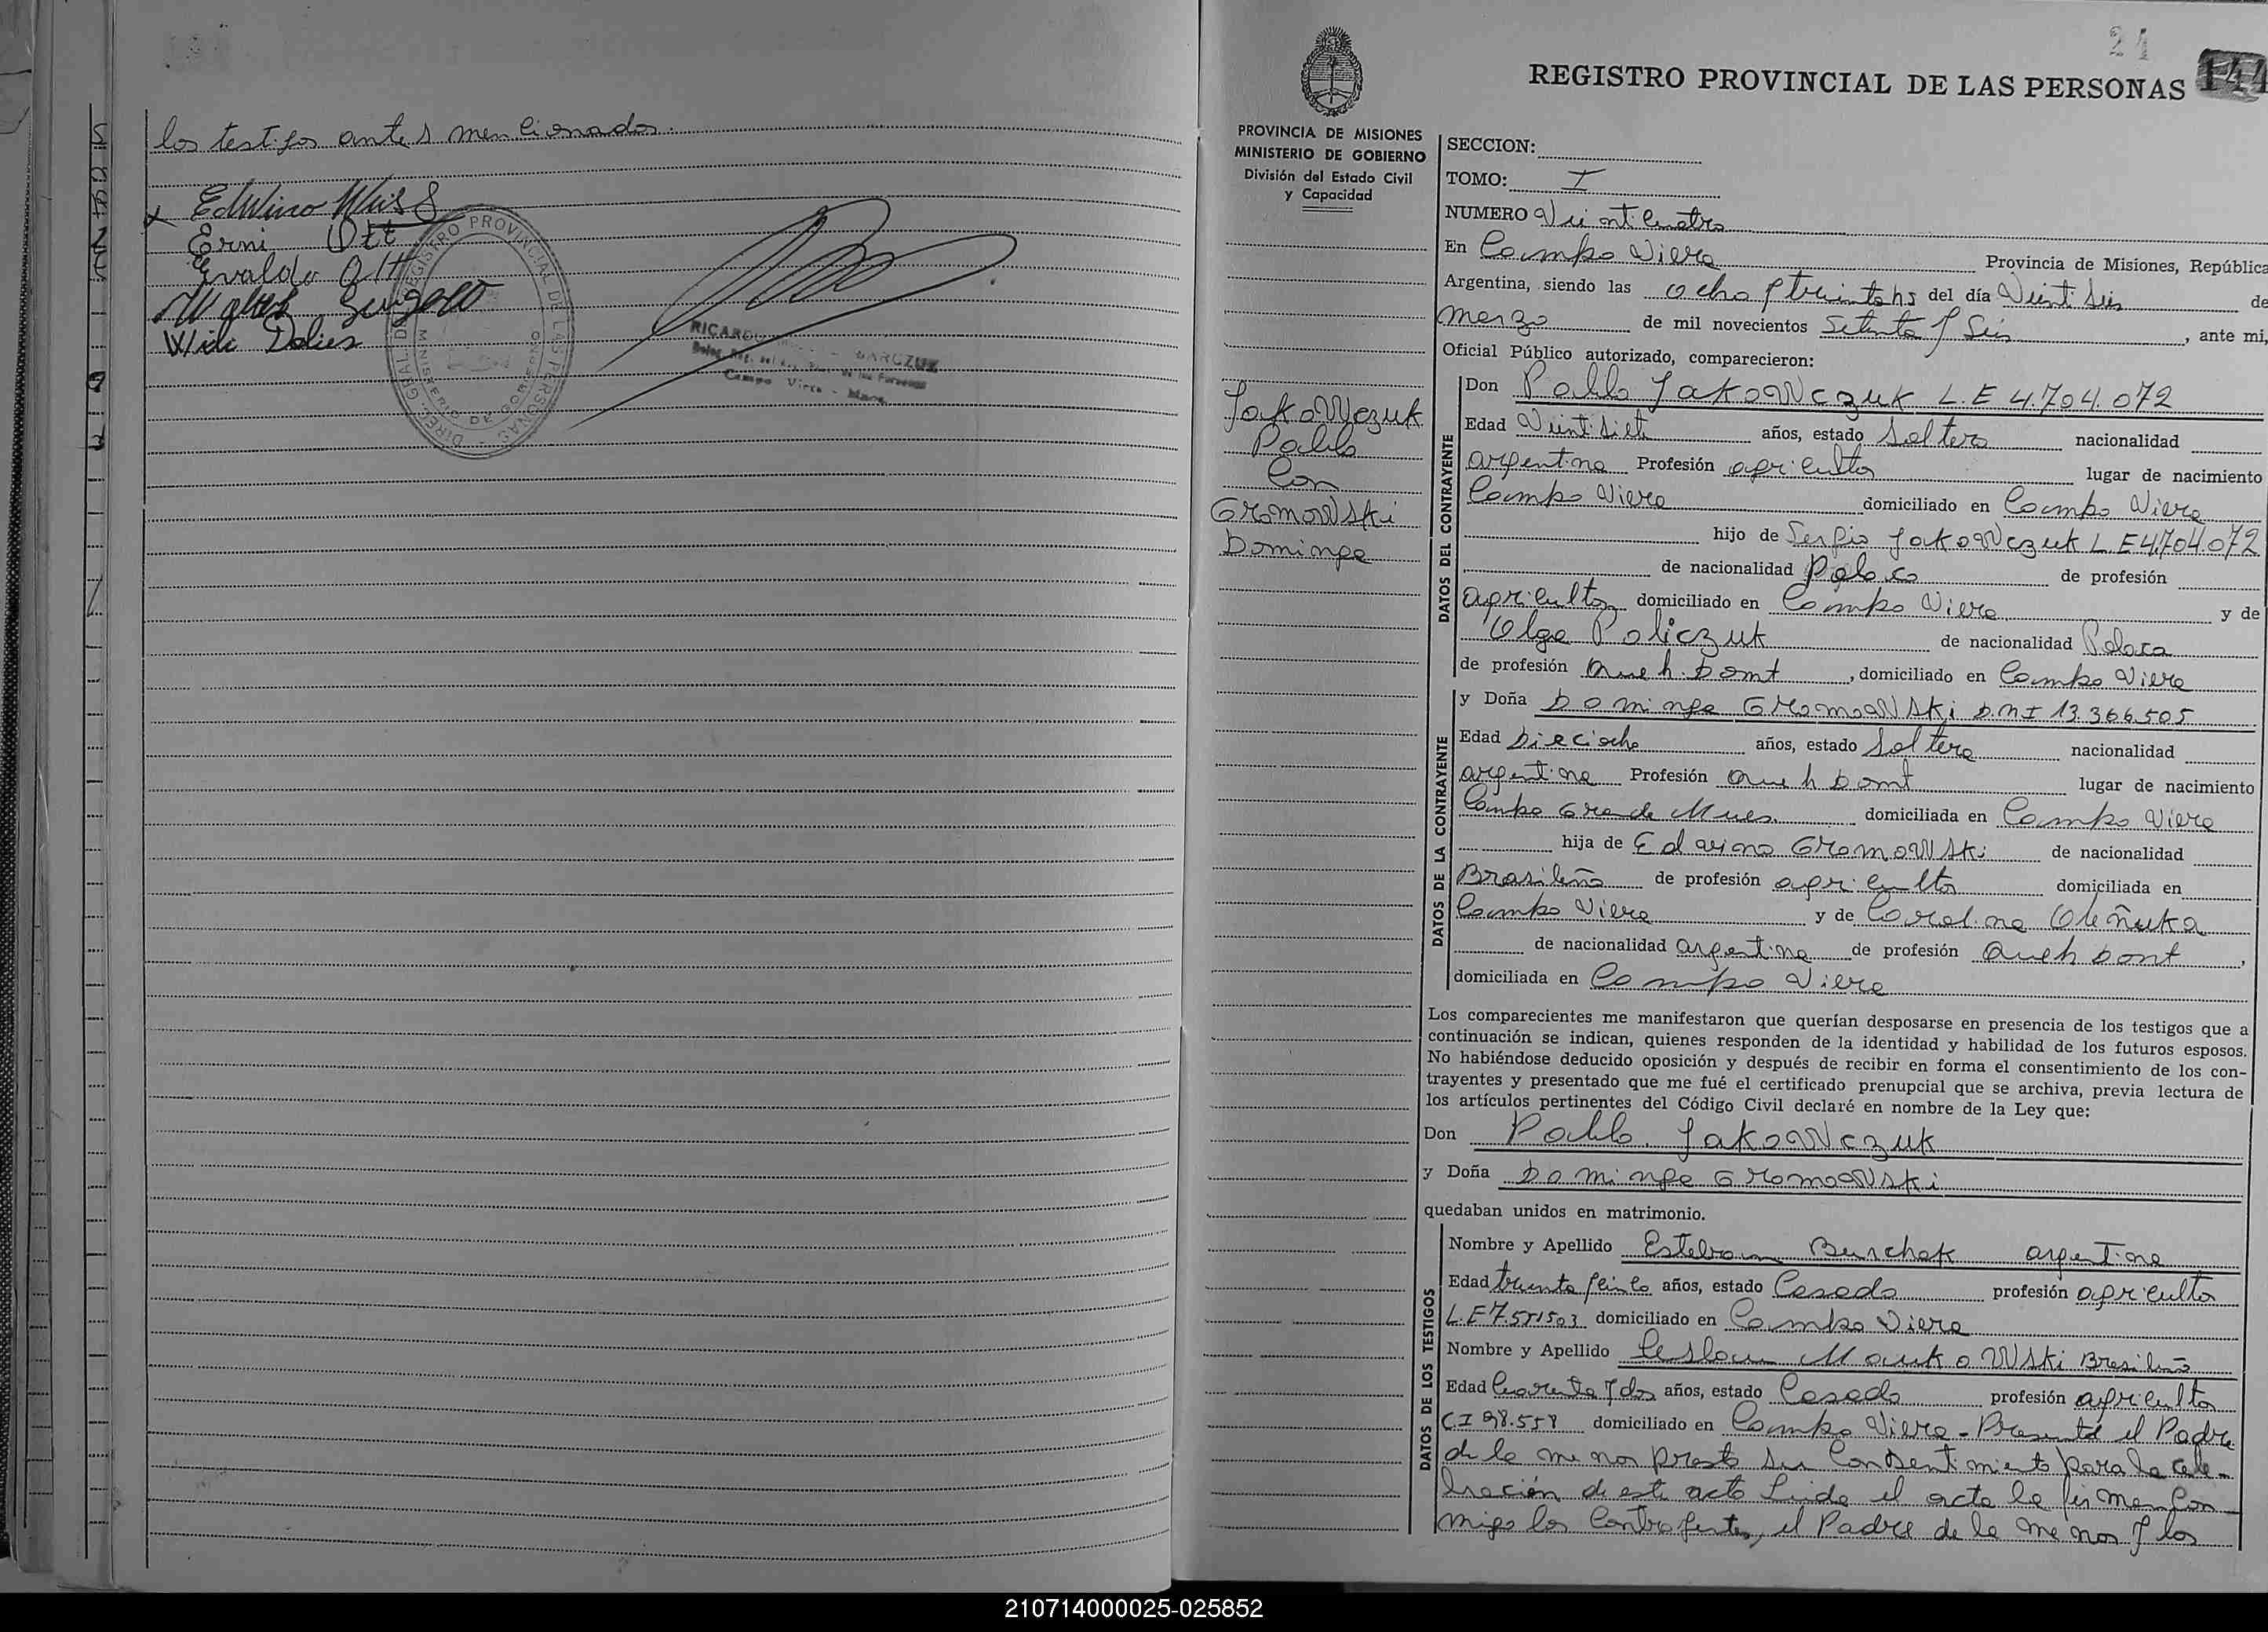 los testigos antes mencionados.
Edwino Weiss
Erni Ott
Evaldo Ott
Wili Dalies
REGISTRO PROVINCIAL DE LAS PERSONAS
MINISTERIO DE GOBIERNO
Campo Viera - Mnes.
24
REGISTRO PROVINCIAL DE LAS PERSONAS 144
PROVINCIA DE MISIONES
MINISTERIO DE GOBIERNO
División del Estado Civil
y Capacidad
Jakowczuk
Pablo
Con
Gromowski
Dominga
SECCION:
TOMO: I
NUMERO Veinticuatro
En Campo Viera Provincia de Misiones, República
Argentina, siendo las ocho y treinta hs del día Veintiseis de
marzo de mil novecientos Setenta y Seis, ante mi,
Oficial Público autorizado, comparecieron:
DATOS DEL CONTRAYENTE
Don Pablo Jakowczuk L.E 4.704.072
Edad Veintisiete años, estado Soltero nacionalidad
argentina Profesión agricultor lugar de nacimiento
Campo Viera domiciliado en Campo Viera
hijo de Sergio Jakowczuk L.E 4.704.072
de nacionalidad Polaco de profesión
agricultor domiciliado en Campo Viera y de
Olga Policzuk de nacionalidad Polaca
de profesión Queh. Domt, domiciliado en Campo Viera
DATOS DE LA CONTRAYENTE
y Doña Dominga Gromowski D.N.I 13.366.505
Edad Dieciocho años, estado Soltera nacionalidad
argentina Profesión Queh Domt lugar de nacimiento
Campo Grande Mnes. domiciliada en Campo Viera
hija de Edwino Gromowski de nacionalidad
Brasileño de profesión agricultor domiciliada en
Campo Viera y de Carolina Oleñuka
de nacionalidad argentina de profesión Queh Domt,
domiciliada en Campo Viera
Los comparecientes me manifestaron que querían desposarse en presencia de los testigos que a
continuación se indican, quienes responden de la identidad y habilidad de los futuros esposos.
No habiéndose deducido oposición y después de recibir en forma el consentimiento de los con-
trayentes y presentado que me fué el certificado prenupcial que se archiva, previa lectura de
los artículos pertinentes del Código Civil declaré en nombre de la Ley que:
Don Pablo Jakowczuk
y Doña Dominga Gromowski
quedaban unidos en matrimonio.
DATOS DE LOS TESTIGOS
Nombre y Apellido Esteban Burchak argentino
Edad treinta y cinco años, estado Casado profesión agricultor
L.E 7.551503 domiciliado en Campo Viera
Nombre y Apellido Ceslau Maukowski Brasileño
Edad Cuarenta y dos años, estado Casado profesión agricultor
C.I 98.558 domiciliado en Campo Viera - Presente el Padre
de la menor presto su Consentimiento para la cele-
bración de este acto Leida el acta la firman Con
migo los Contrayentes, el Padre de la menor y los
210714000025-025852